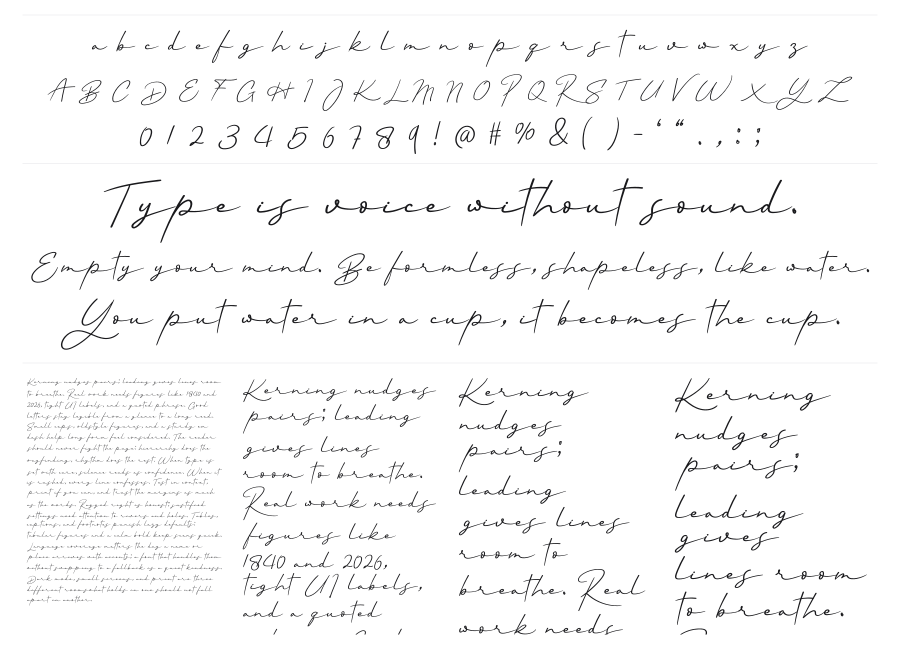 a b c d e f g h i j k l m n o p q r s t u v w x y z
A B C D E F G H I J K L M N O P Q R S T U V W X Y Z
0 1 2 3 4 5 6 7 8 9 ! @ # % & ( ) - ‘ “ . , : ;
Type is voice without sound.
Empty your mind. Be formless, shapeless, like water.
You put water in a cup, it becomes the cup.
Kerning nudges pairs; leading gives lines room
to breathe. Real work needs figures like 1840 and
2026, tight UI labels, and a quoted phrase. Good
letters stay legible from a glance to a long read.
Small caps, oldstyle figures, and a sturdy en
dash help long form feel considered. The reader
should never fight the page; hierarchy does the
wayfinding, rhythm does the rest. When type is
set with care, silence reads as confidence. When it
is rushed, every line confesses. Test in context,
print if you can, and trust the margins as much
as the words. Ragged right is honest; justified
settings need attention to rivers and holes. Tables,
captions, and footnotes punish lazy defaults;
tabular figures and a calm bold keep scans quick.
Language coverage matters the day a name or
place arrives with accents; a font that handles them
without swapping to a fallback is a quiet kindness.
Dark mode, small screens, and print are three
different rooms; what holds in one should not fall
apart in another.
Kerning nudges
pairs; leading
gives lines
room to breathe.
Real work needs
figures like
1840 and 2026,
tight UI labels,
and a quoted
Kerning
nudges
pairs;
leading
gives lines
room to
breathe. Real
work needs
Kerning
nudges
pairs;
leading
gives
lines room
to breathe.